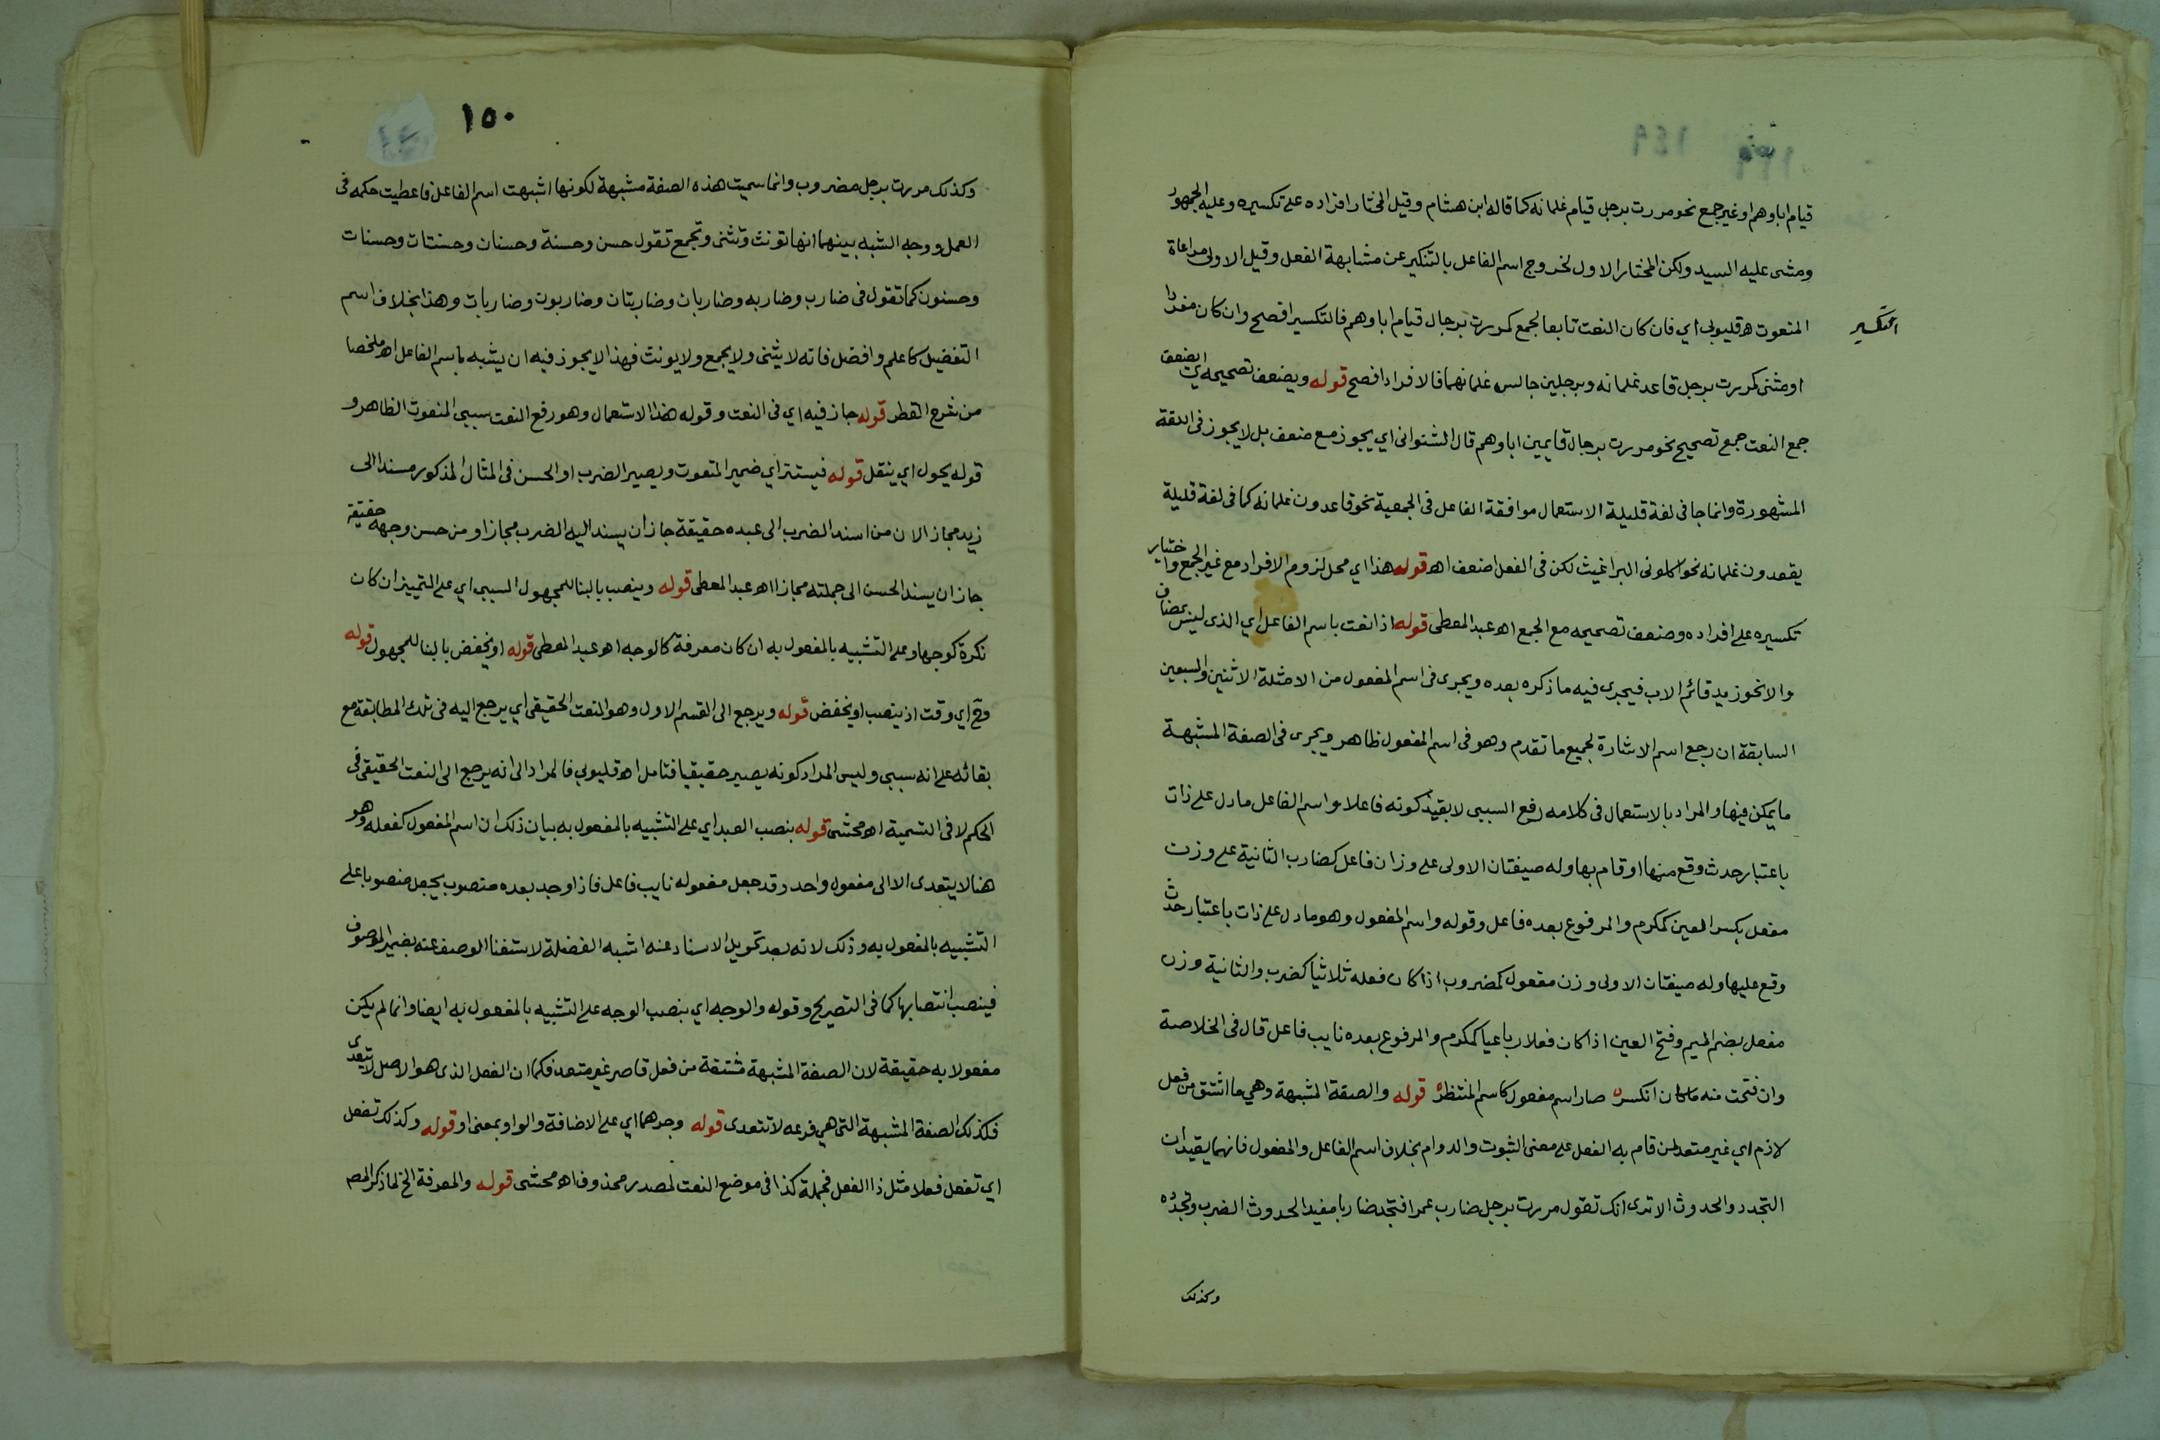 قيام اباوهم او غير جمع نحو مررت برجل قيام غلمانه كما قاله ابن هشام وقيل المختار افراده على تكسيره وعليه الجمهور
ومشى عليه السيد ولكن المختار الاول لخروج اسم الفاعل بالتكسير عن مشابهة الفعل وقيل الاولى مراعاة
التكسير
المنعوت اهـ قليوبى اي فان كان النعت تابعا لجمع كمررت برجال قيام اباوهم فالتكسير افصح وان كان مفردا
او مثنى كمررت برجل قاعد غلمانه وبرجلين جالس غلمانهما فالافراد افصح قوله ويضعف تصحيحه اي يضعف
جمع النعت جمع تصحيح نحو مررت برجال قايمين اباوهم قال الشنوانى اي يجوز مع ضعف بل لا يجوز فى اللغة
المشهورة وانما جا فى لغة قليلة الاستعمال موافقة الفاعل فى الجمعية نحو قاعدون غلمانه كما فى لغة قليلة
يقعدون غلمانه نحو اكلونى البراغيث لكن فى الفعل اضعف اهـ قوله هذا اي محل لزوم الافراد مع غير الجمع واختيار
تكسيره على افراده وضعف تصحيحه مع الجمع اهـ عبد المعطى قوله اذا نعت باسم الفاعل اي الذى ليس بمضاف
والا نحو زيد قائم الاب فيجرى فيه ما ذكره بعده ويجرى فى اسم المفعول من الامثلة الاثنين والسبعين
السابقة ان رجع اسم الاشارة لجميع ما تقدم وهو فى اسم المفعول ظاهر ويجرى فى الصفة المشبهة
ما يمكن فيها والمراد بالاستعمال فى كلامه رفع السببى لا بقيد كونه فاعلا واسم الفاعل ما دل على ذات
باعتبار حدث وقع منها او قام بها وله صيغتان الاولى على وزان فاعل كضارب الثانية على وزن
مفعل بكسر العين كمكرم والمرفوع بعده فاعل وقوله واسم المفعول وهو ما دل على ذات باعتبار حدث
وقع عليها وله صيغتان الاولى وزن مفعول كمضروب اذا كان فعله ثلاثيا كضرب والثانية وزن
مفعل بضم الميم وفتح العين اذا كان فعلا رباعيا كمكرم والمرفوع بعده نايب فاعل قال فى الخلاصة
وان فتحت منه ما كان انكسر ه صار اسم مفعول كاسم المنتظر ه قوله والصفة المشبهة وهي ما اشتق من فعل
لازم اي غير متعد لمن قام به الفعل على معنى الثبوت والدوام بخلاف اسم الفاعل والمفعول فانهما يفيدان
التجدد والحدوث الا ترى انك تقول مررت برجل ضارب عمرا فتجد ضاربا مفيدا لحدوث الضرب وتجدده
وكذلك
١٥٠
وكذلك مررت برجل مضروب وانما سميت هذه الصفة مشبهة لكونها اشبهت اسم الفاعل فاعطيت حكمه فى
العمل ووجه الشبه بينهما انها تونث وتثنى وتجمع تقول حسن وحسنة وحسنان وحسنتان وحسنات
وحسنون كما تقول فى ضارب وضاربه وضاربان وضاربتان وضاربون وضاربات وهذا بخلاف اسم
التفضيل كاعلم وافضل فانه لا يثنى ولا يجمع ولا يونث فهذا لا يجوز فيه ان يشبه باسم الفاعل اهـ ملخصا
من شرح القطر قوله جاز فيه اي فى النعت وقوله هذا الاستعمال وهو رفع النعت سببى المنعوت الظاهر و
قوله يحول اي ينقل قوله فيستتر اي ضمير المنعوت ويصير الضرب او الحسن فى المثال المذكور مسندا الى
زيد مجازا لان من اسند الضرب الى عبده حقيقة جاز ان يسند اليه الضرب مجازا ومن حسن وجهه حقيقة
جاز ان يسند الحسن الى جملته مجازا اهـ عبد المعطى قوله وينصب بالبنا للمجهول السببى اي على التمييز ان كان
نكرة كوجها وعلى التشبيه بالمفعول به ان كان معرفة كالوجه اهـ عبد المعطى قوله او يخفض بالبنا للمجهول قوله
وح اي وقت اذ ينصب او يخفض قوله ويرجع الى القسم الاول وهو النعت الحقيقى اي يرجع اليه فى تلك المطابقة مع
بقائه على انه سببى وليس المراد كونه يصير حقيقيا فتامل اهـ قليوبي فالمراد الى انه يرجع الى النعت الحقيقى فى
الحكم لا فى التسمية اهـ محشى قوله بنصب العبد اي على التشبيه بالمفعول به بيان ذلك ان اسم المفعول كفعله وهو
هنا لا يتعدى الا الى مفعول واحد وقد جعل مفعوله نايب فاعل فاذا وجد بعده منصوب يجعل منصوبا على
التشبيه بالمفعول به وذلك لانه بعد تحويل الاسناد عنه اشبه الفضلة لاستغنا الوصف عنه بضمير الموصوف
فينصب انتصابها كما فى التصريح وقوله والوجه اي بنصب الوجه على التشبيه بالمفعول به ايضا وانما لم يكن
مفعولا به حقيقة لان الصفة المشبهة مشتقة من فعل قاصر غير متعد فكما ان الفعل الذى هو الاصل لا يتعدى
فكذلك الصفة المشبهة التى هي فرعه لا تتعدى قوله وجرهما اي على الاضافة والواو بمعنى او قوله وكذلك تفعل
اي تفعل فعلا مثل ذا الفعل فجملة كذا فى موضع النعت لمصدر محذوف اهـ محشى قوله والمعرفة الخ لما ذكر المص